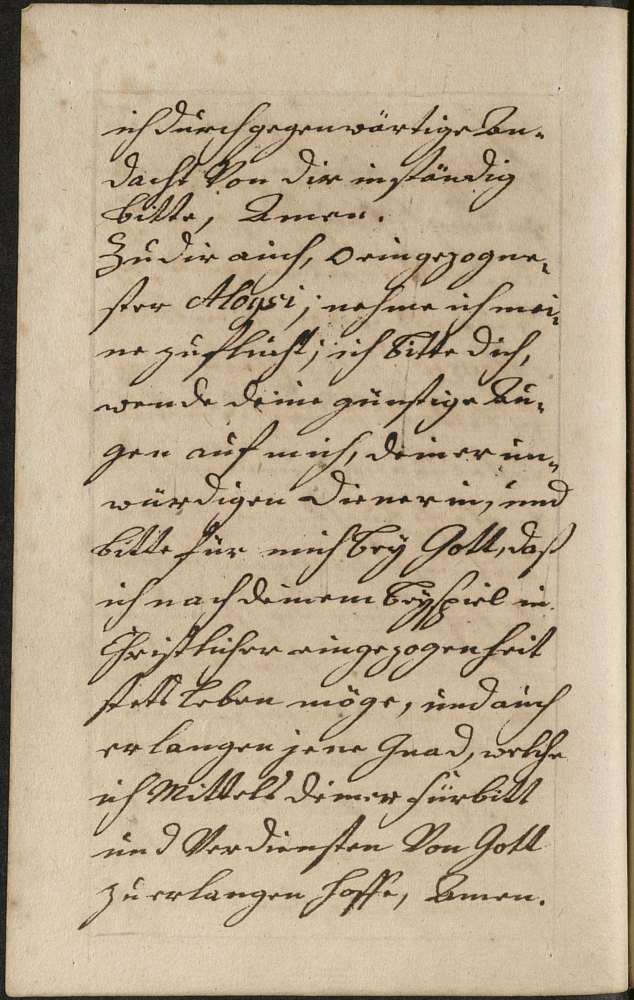 ich durch gegenwärtige An-
dacht Von dir inständig
bitte, Amen.
Zu dir auch, O eingezogne-
ster Aloysi, nehme ich mei-
ne zuflucht; ich bitte dich,
wende deine günstige Au-
gen auf mich, deiner un-
würdigen Dienerin, und
bitte für mich bey Gott, daß
ich nach deinem beyspiel in
Christlicher eingezogenheit
stets leben möge, und auch
erlangen jene Gnad, welche
ich Mittels deiner fürbitt
und Verdiensten Von Gott
zu erlangen hoffe, Amen.